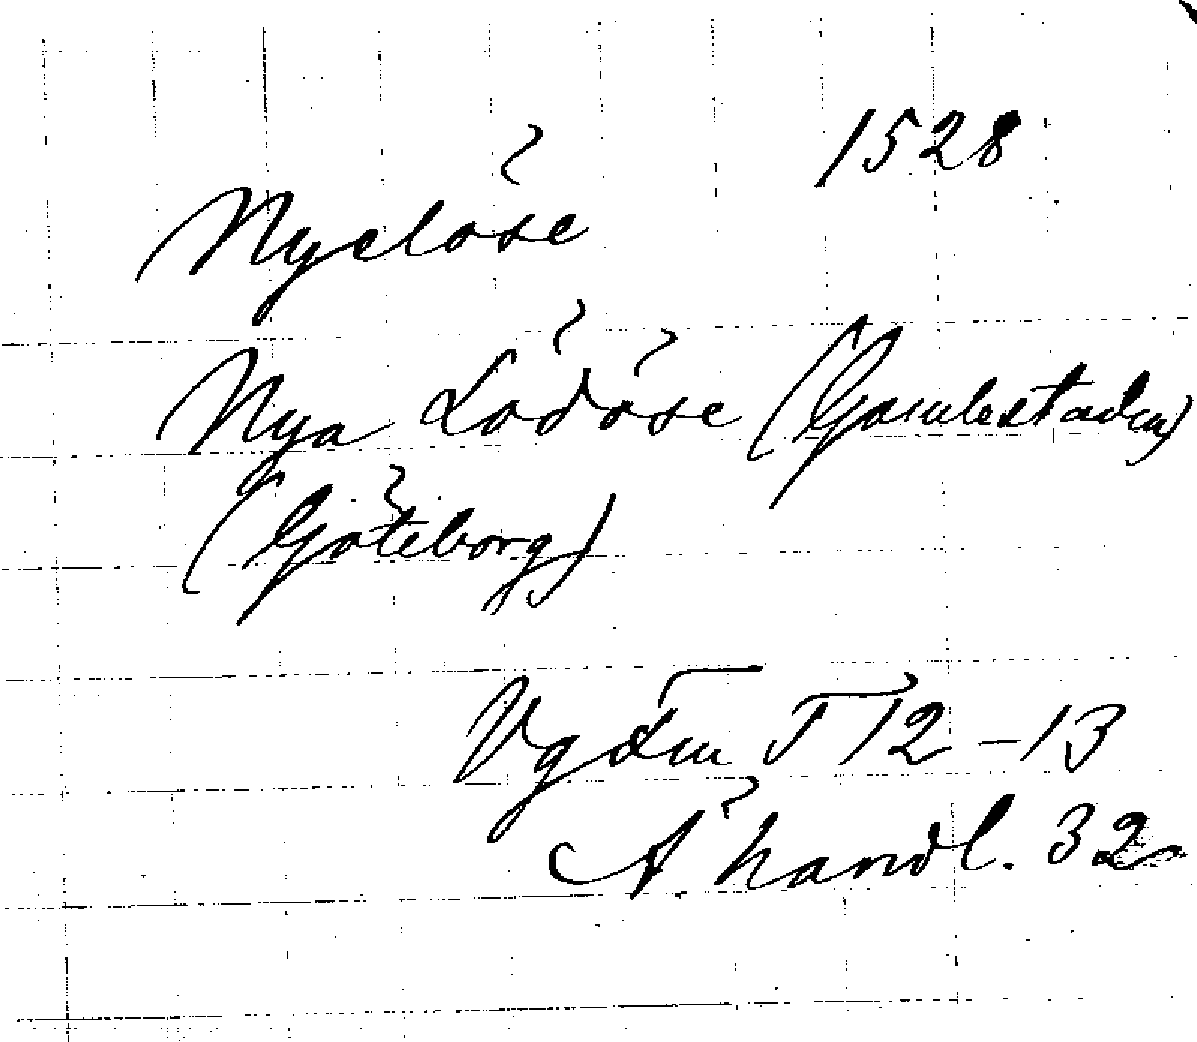 1528
Nyelöse
Nya Lödöse (Gamlestaden)
(Göteborg)
T 12-13
Ä. handl. 32